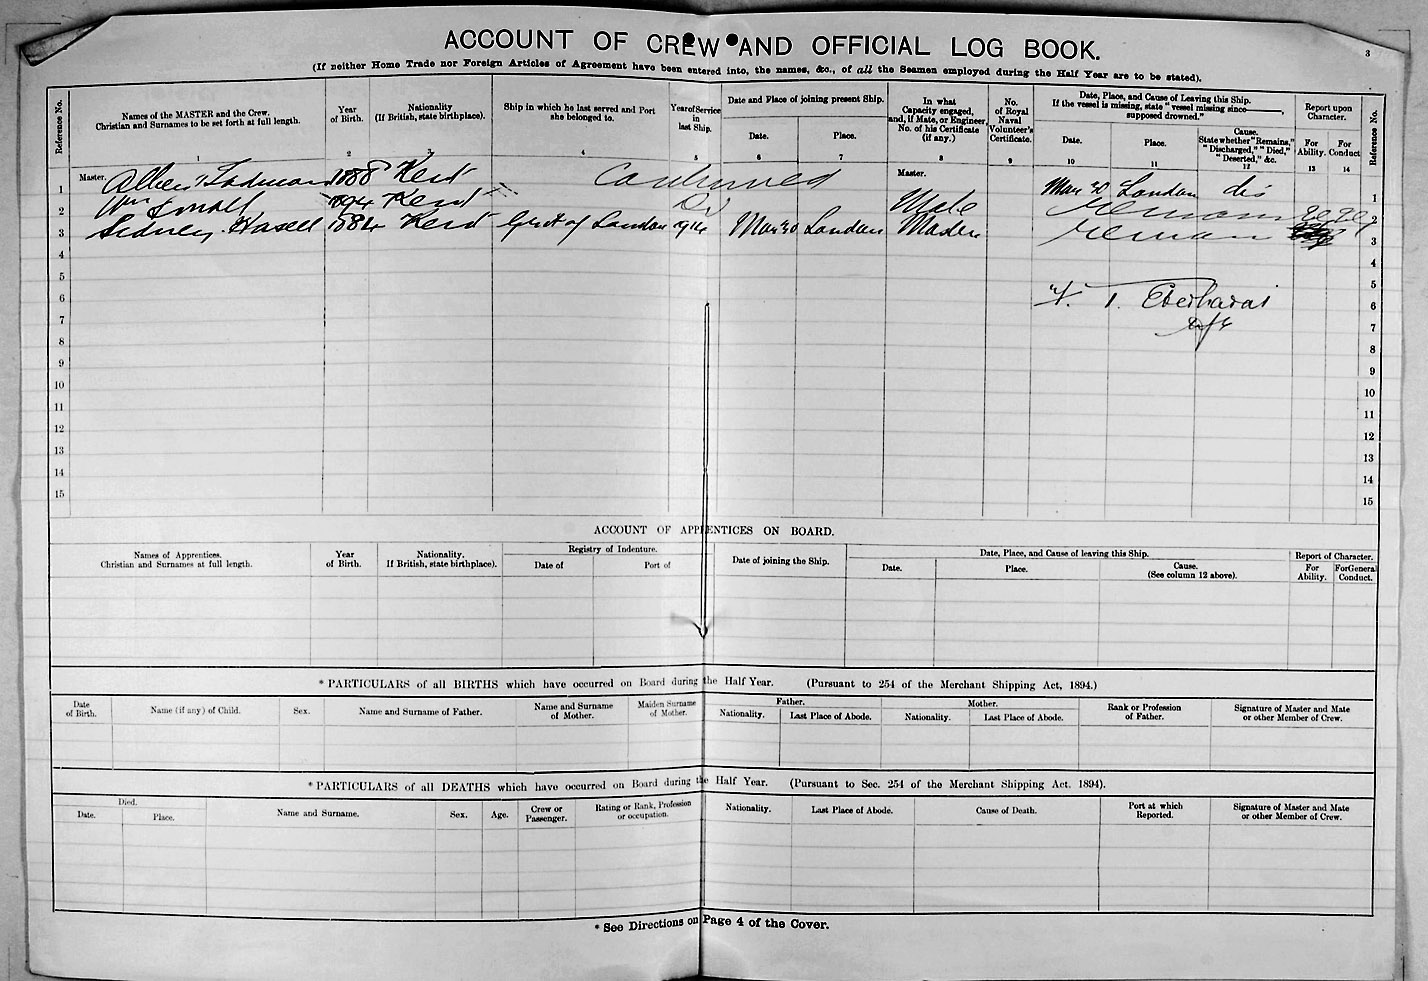 3
ACCOUNT OF CREW AND OFFICIAL LOG BOOK.
(If neither Home Trade nor Foreign Articles of Agreement have been entered into, the names, &c., of all the Seamen employed during the Half Year are to be stated).
Reference No.
Names of the MASTER and the Crew.
Christian and Surnames to be set forth at full length.
1
Year
of Birth.
2
Nationality
(If British, state birthplace).
3
Ship in which he last served and Port
she belonged to.
4
Year of Service
in
last Ship.
5
Date and Place of joining present Ship.
Date.
6
Place.
7
In what
Capacity engaged,
and, if Mate, or Engineer,
No. of his Certificate
(if any.)
8
No.
of Royal
Naval
Volunteer's
Certificate.
9
Date, Place, and Cause of Leaving this Ship.
If the vessel is missing, state "vessel missing since
supposed drowned."
Date.
10
Place.
11
Cause.
State whether "Remains,"
"Discharged," "Died,"
"Deserted," &c.
12
Report upon
Character.
For
Ability.
13
For
Conduct
14
Reference No.
1 Master. Albert 1888 Kent Continued Master. Mar 30 London dis 1
2 Wm 1894 Kent Do Mate remains 2
3 Sidney Kasell 1884 Kent Port of London 1914 Mar 30 London Master remain 3
4 4
5 5
6 6
7 7
8 8
9 9
10 10
11 11
12 12
13 13
14 14
15 15
ACCOUNT OF APPRENTICES ON BOARD.
Names of Apprentices.
Christian and Surnames at full length.
Year
of Birth.
Nationality.
If British, state birthplace).
Registry of Indenture.
Date of
Port of
Date of joining the Ship.
Date, Place, and Cause of leaving this Ship.
Date.
Place.
Cause.
(See column 12 above).
Report of Character.
For
Ability.
For General
Conduct.
* PARTICULARS of all BIRTHS which have occurred on Board during the Half Year. (Pursuant to 254 of the Merchant Shipping Act, 1894.)
Date
of Birth.
Name (if any) of Child.
Sex.
Name and Surname of Father.
Name and Surname
of Mother.
Maiden Surname
of Mother.
Father.
Nationality.
Last Place of Abode.
Mother.
Nationality.
Last Place of Abode.
Rank or Profession
of Father.
Signature of Master and Mate
or other Member of Crew.
* PARTICULARS of all DEATHS which have occurred on Board during the Half Year. (Pursuant to Sec. 254 of the Merchant Shipping Act. 1894).
Died.
Date.
Place.
Name and Surname.
Sex.
Age.
Crew or
Passenger.
Rating or Rank, Profession
or occupation.
Nationality.
Last Place of Abode.
Cause of Death.
Port at which
Reported.
Signature of Master and Mate
or other Member of Crew.
* See Directions on Page 4 of the Cover.